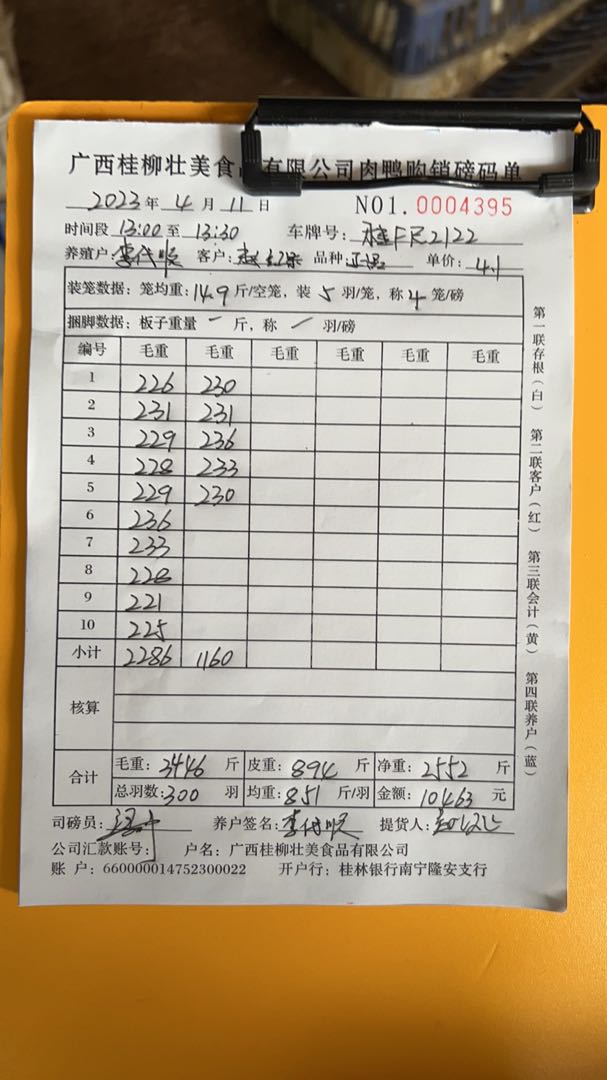 广西桂柳壮美食品有限公司肉鸭购销磅码单
2023年4月11日 NO1.0004395
时间段 13:00 至 13:30 车牌号: 桂FR2122
养殖户: 李代顺 客户: 赵 品种 单价: 4.1
装笼数据: 笼均重: 14.9 斤/空笼, 装 5 羽/笼, 称 4 笼/磅
捆脚数据: 板子重量 一 斤, 称 / 羽/磅
编号 毛重 毛重 毛重 毛重 毛重 毛重
1 226 230
2 231 231
3 229 236
4 228 233
5 229 230
6 236
7 233
8 228
9 221
10 225
小计 2286 1160
核算
合计 毛重: 3446 斤 皮重: 894 斤 净重: 2552 斤
总羽数: 300 羽 均重: 8.51 斤/羽 金额: 10463 元
司磅员: 养户签名: 李代顺 提货人:
公司汇款账号: 户名: 广西桂柳壮美食品有限公司
账 户: 660000014752300022 开户行: 桂林银行南宁隆安支行
第一联存根(白) 第二联客户(红) 第三联会计(黄) 第四联养户(蓝)